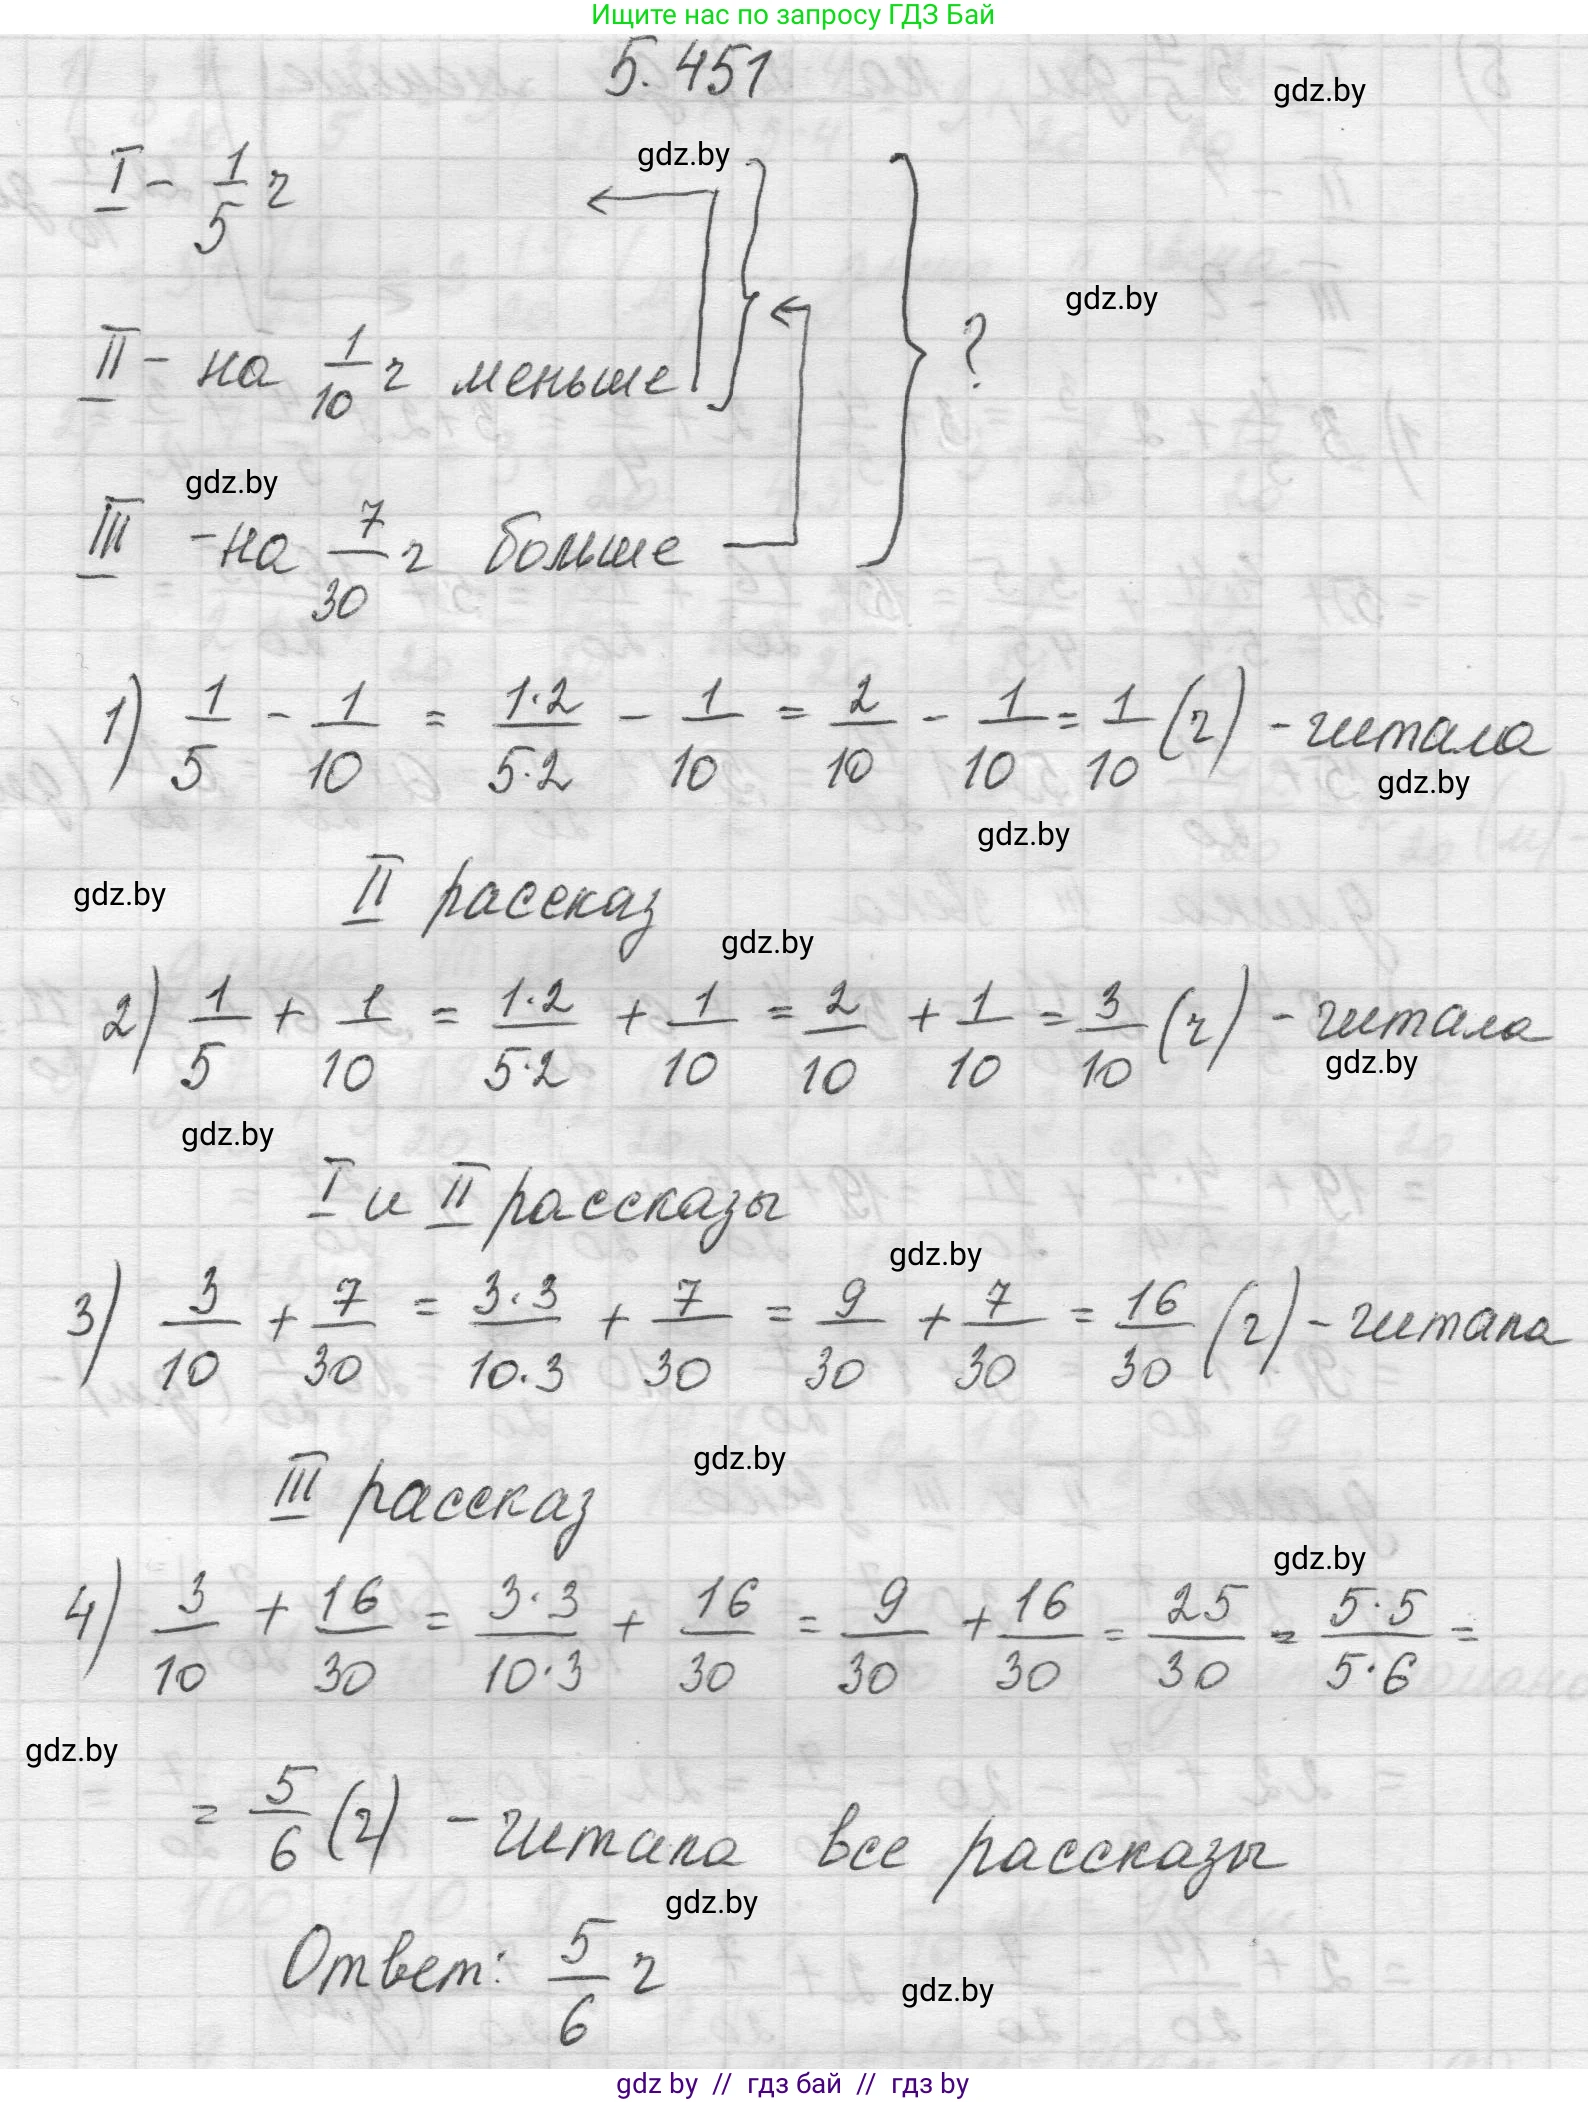 Ищите нас по запросу ГДЗ Бай
5.451
gdz.by
gdz.by
I - 1/5 ч
gdz.by
?
II - на 1/10 ч меньше
gdz.by
III - на 7/30 ч больше
1) 1/5 - 1/10 = 1·2/5·2 - 1/10 = 2/10 - 1/10 = 1/10 (ч) - читала
gdz.by
gdz.by
gdz.by
II рассказ
gdz.by
2) 1/5 + 1/10 = 1·2/5·2 + 1/10 = 2/10 + 1/10 = 3/10 (ч) - читала
gdz.by
gdz.by
I и II рассказы
gdz.by
3) 3/10 + 7/30 = 3·3/10·3 + 7/30 = 9/30 + 7/30 = 16/30 (ч) - читала
gdz.by
III рассказ
gdz.by
4) 3/10 + 16/30 = 3·3/10·3 + 16/30 = 9/30 + 16/30 = 25/30 = 5·5/5·6 =
gdz.by
= 5/6 (ч) - читала все рассказы
gdz.by
Ответ: 5/6 ч
gdz.by
gdz by // гдз бай // gdz by